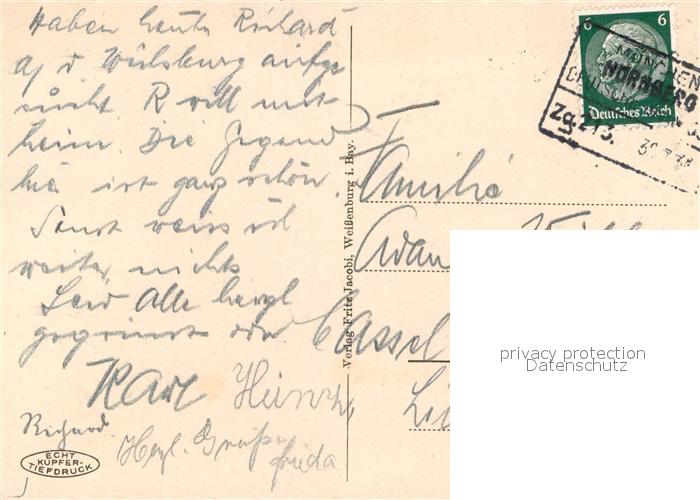 Haben heute Richard
a/ d. Wülsburg aufge
sucht. R will mit
heim. Die Gegend
hie ist ganz schön.
Sonst weiss ich
weiter nichts
Seid Alle herzl
gegrüsst von
Karl Heinz
Richard
Hrzl. Grüße
Frieda
ECHT
KUPFER-
TIEFDRUCK
Verlag Fritz Jacobi, Weißenburg i. Bay.
6 6
Deutsches Reich
MÜNCHEN
NÜRNBERG
Zg.273.
Familie
Adam
Cassel
privacy protection
Datenschutz